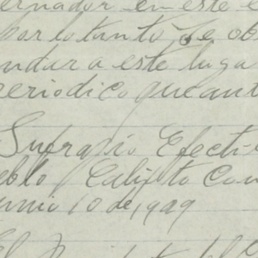 ernador en este e
Por lo tanto, se ob
ndura este luga
periodico que ant
Sufragio Efecti
eblo Calixto Con
unio 10 de 1929